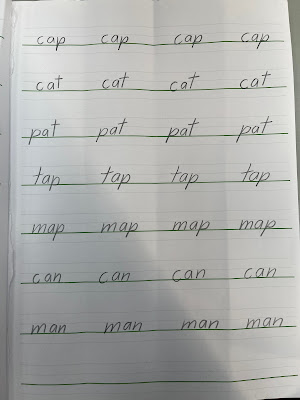 cap cap cap cap
cat cat cat cat
pat pat pat pat
tap tap tap tap
map map map map
can can can can
man man man man